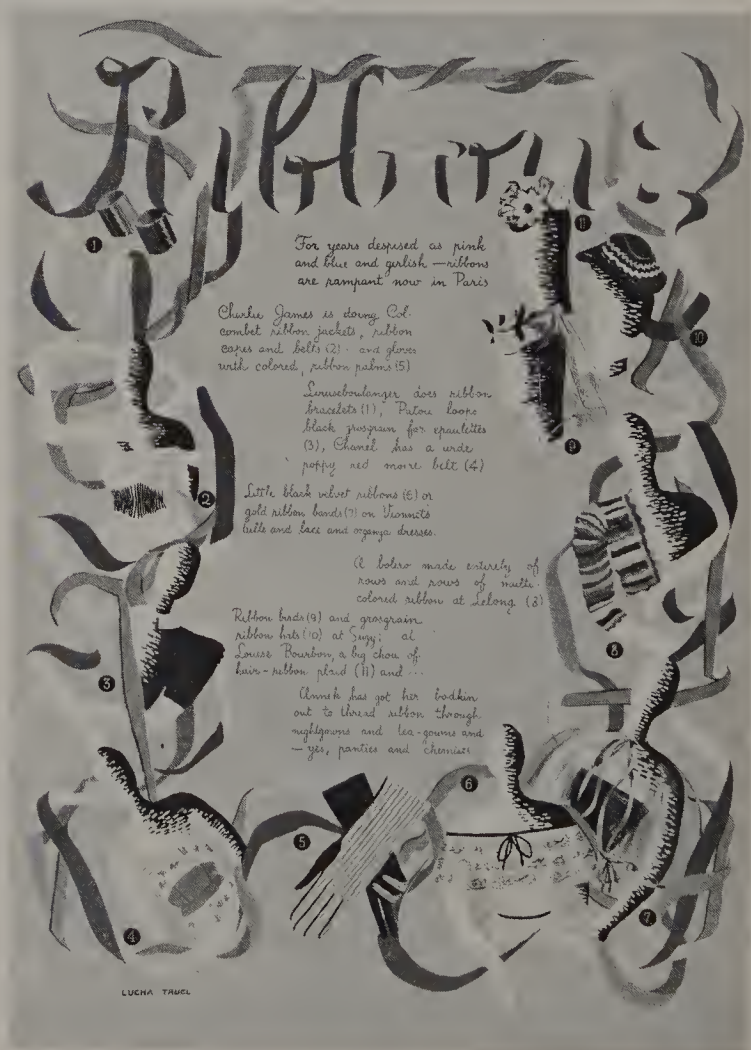 Ribbons
For years despised as pink
and blue and girlish — ribbons
are rampant now in Paris
Charlie James is doing Col-
combet ribbon jackets, ribbon
capes and belts (2) - and gloves
with colored, ribbon palms (5)
Louiseboulanger does ribbon
bracelets (1), Patou loops
black grosgrain for epaulettes
(3), Chanel has a wide
poppy red moire belt (4)
Little black velvet ribbons (6) or
gold ribbon bands (7) on Vionnet's
tulle and lace and organza dresses.
A bolero made entirely of
rows and rows of multi-
colored ribbon at Lelong (8)
Ribbon birds (9) and grosgrain
ribbon hats (10) at Suzy; at
Louise Bourbon, a big chou of
hair-ribbon plaid (11) and ...
Annek has got her bodkin
out to thread ribbon through
nightgowns and tea-gowns and
— yes, panties and chemises
1
11
10
9
2
8
3
6
5
7
4
LUCHA TRUEL